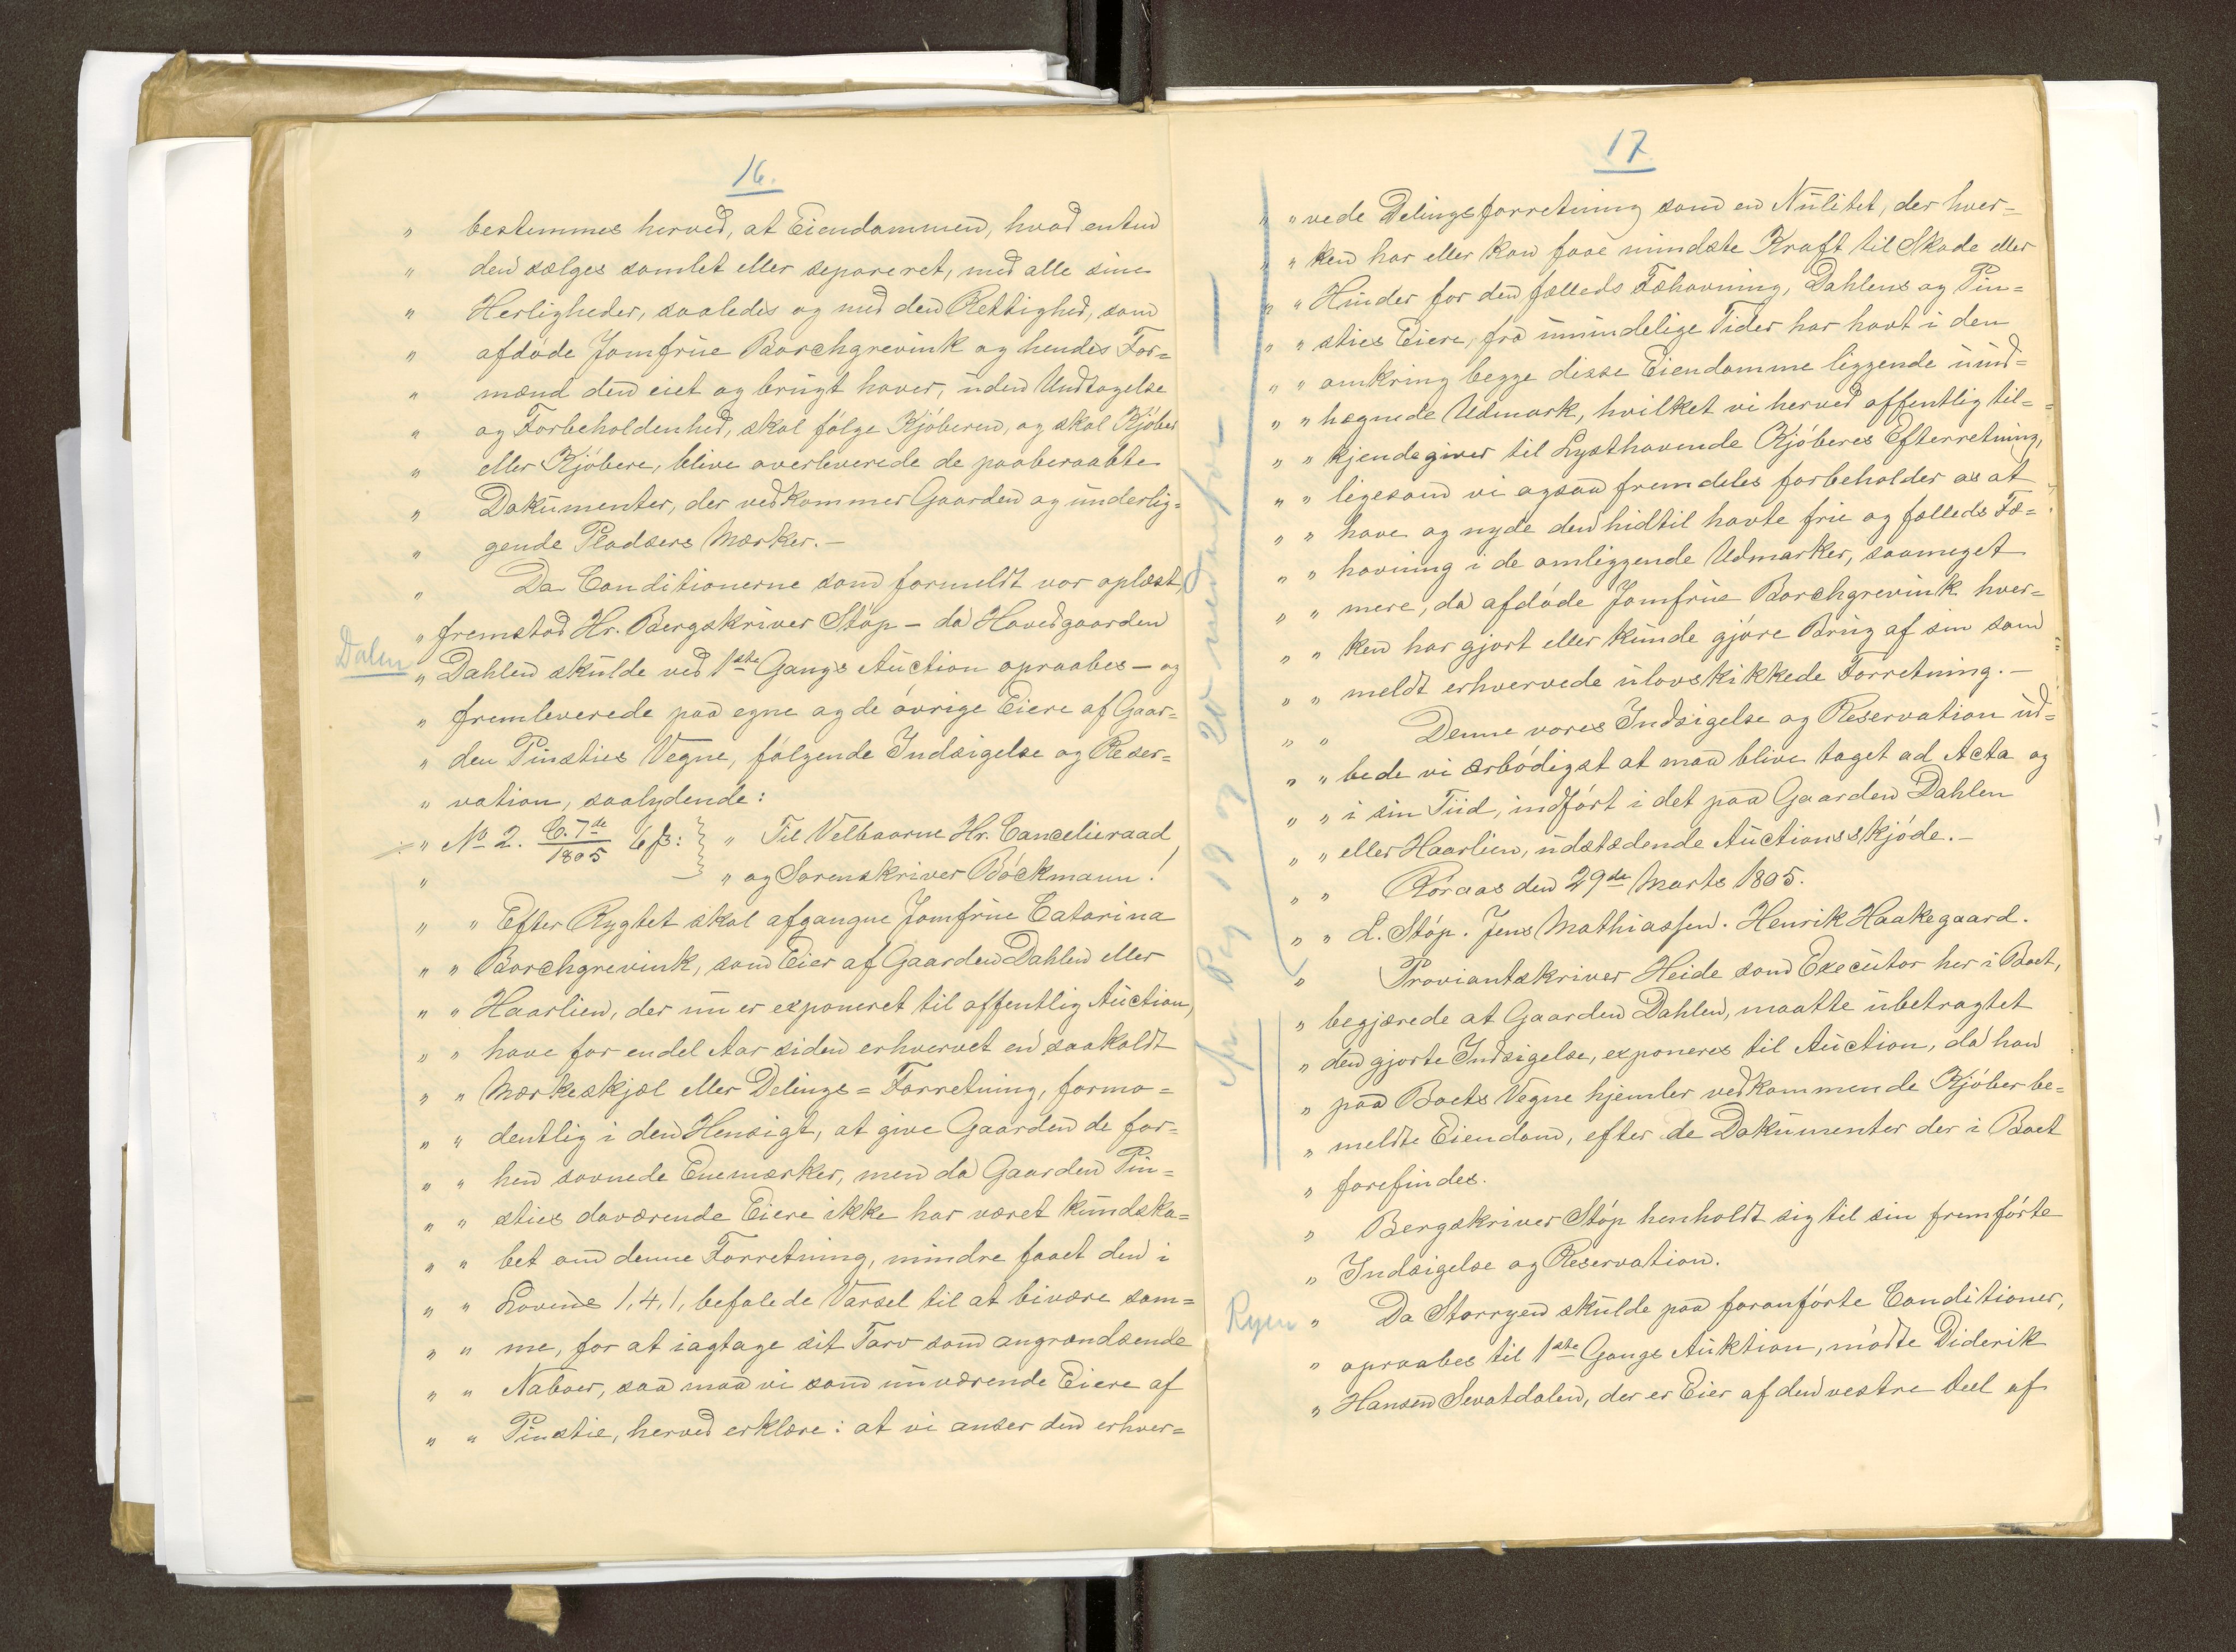 16.
" bestemmes herved, at Eiendommen, hvad enten
" den sælges samlet eller separeret, med alle sine
" Herligheder, saaledes og med den Rettighed, som
" afdøde Jomfrue Borchgrevink og hendes For=
" mænd den eiet og brugt haver, uden Undtagelse
" og Forbeholdenhed, skal følge Kjøberen, og skal Kjøber
" eller Kjøbere, blive overleverede de paaberaabte
" Dokumenter, der vedkommer Gaarden og underlig=
" gende Pladsers Mærker.-
" Da Conditionerne som formeldt var oplæst,
" fremstod Hr. Bergskriver Støp - da Hovedgaarden
Dalen
" Dahlen skulde ved 1ste Gangs Auction opraabes - og
" fremleverede paa egne og de øvrige Eiere af Gaar=
" den Pinsties Vegne, følgende Indsigelse og Reser=
" vation, saalydende:
" No 2. C. 7de 1805 6 β: } " Til Velbaarne Hr. Cancelieraad
" " og Sorenskriver Böckmann!
" " Efter Rygtet skal afgangne Jomfrue Catarina
" " Borchgrevink, som Eier af Gaarden Dahlen eller
" " Haarlien, der nu er exponeret til offentlig Auction,
" " have for endel Aar siden erhvervet en saakaldt
" " Mærkeskjæl eller Delings=Forretning, formo=
" " dentlig i den Hensigt, at give Gaarden de for=
" " hen savnede Enemærker, men da Gaarden Pin=
" " sties daværende Eiere ikke har været kundska=
" " bet om denne Forretning, mindre faaet den i
" " Lovens 1, 4, 1, befalede Varsel til at bivære sam=
" " me, for at iagtage sit Tarv som angrændsende
" " Naboer, saa maa vi som nuværende Eiere af
" " Pinstie, herved erklære: at vi anser den erhver=
17
" " vede Delingsforretning som en Nulitet, der hver=
" " ken har eller kan faae mindste Kraft til Skade eller
" " Hinder for den fælleds Fæhavning, Dahlens og Pin=
" " sties Eiere, fra umindelige Tider har havt i den
" " omkring begge disse Eiendomme liggende uind=
" " hegnede Udmark, hvilket vi herved offentlig til=
" " kjendegiver til Lysthavende Kjøberes Efterretning,
" " ligesom vi ogsaa fremdeles forbeholder os at
" " have og nyde den hidtil havte frie og fælleds Fæ=
" " havning i de omliggende Udmarker, saameget
" " mere, da afdøde Jomfrue Borchgrevink hver=
" " ken har gjort eller kunde gjøre Brug af sin som
" " meldt erhvervede ulovskikkede Forretning.-
" " Denne vores Indsigelse og Reservation ud=
" " bede vi ærbødigst at maa blive taget ad Acta og
" " i sin Tiid, indført i det paa Gaarden Dahlen
" " eller Haarlien, udstædende Auctionsskjøde.-
" " Røraas den 29de Marts 1805.
" " L. Støp. Jens Mathiassen. Henrik Haakegaard.
" Proviantskriver Heide som Executor her i Boet,
" begjærede at Gaarden Dahlen, maatte ubetragtet
" den gjorte Indsigelse, exponeres til Auction, da han
" paa Boets Vegne hjemler vedkommende Kjøber be=
" meldte Eiendom, efter de Dokumenter der i Boet
" forefindes.
" Bergskriver Støp henholdt sig til sin fremførte
" Indsigelse og Reservation.
Ryen
" Da Storryen skulde paa foranførte Conditioner,
" opraabes til 1ste Gangs Auktion, mødte Diderik
" Hansen Sevatdalen, der er Eier af den vestre Deel af
Pag 19 og 20 nedenfor.